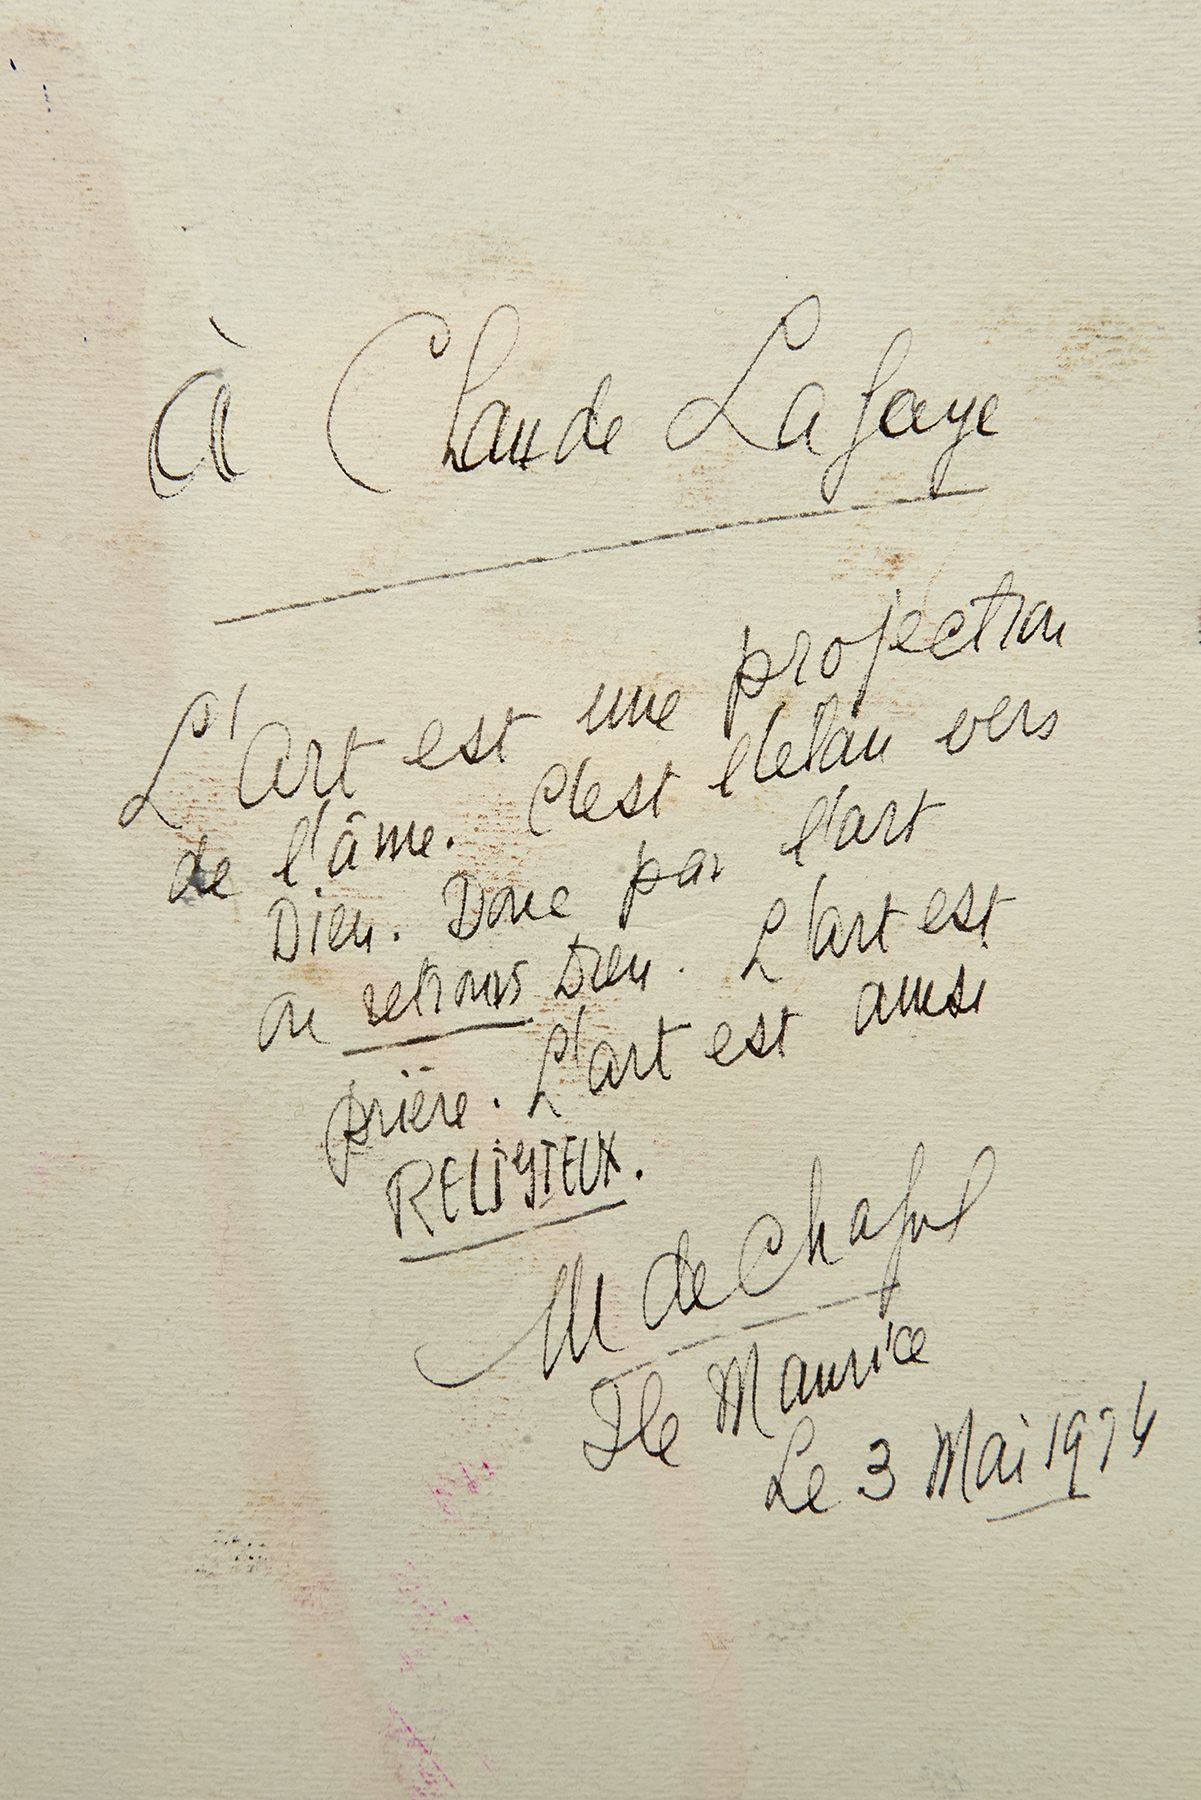 à Claude Lafaye
L'Art est une projection
de l'âme. C'est l'élan vers
Dieu. Donc par l'art
on retrouve Dieu. L'art est
prière. L'art est ainsi
RELIGIEUX.
M de Chazal
Ile Maurice
Le 3 Mai 1974